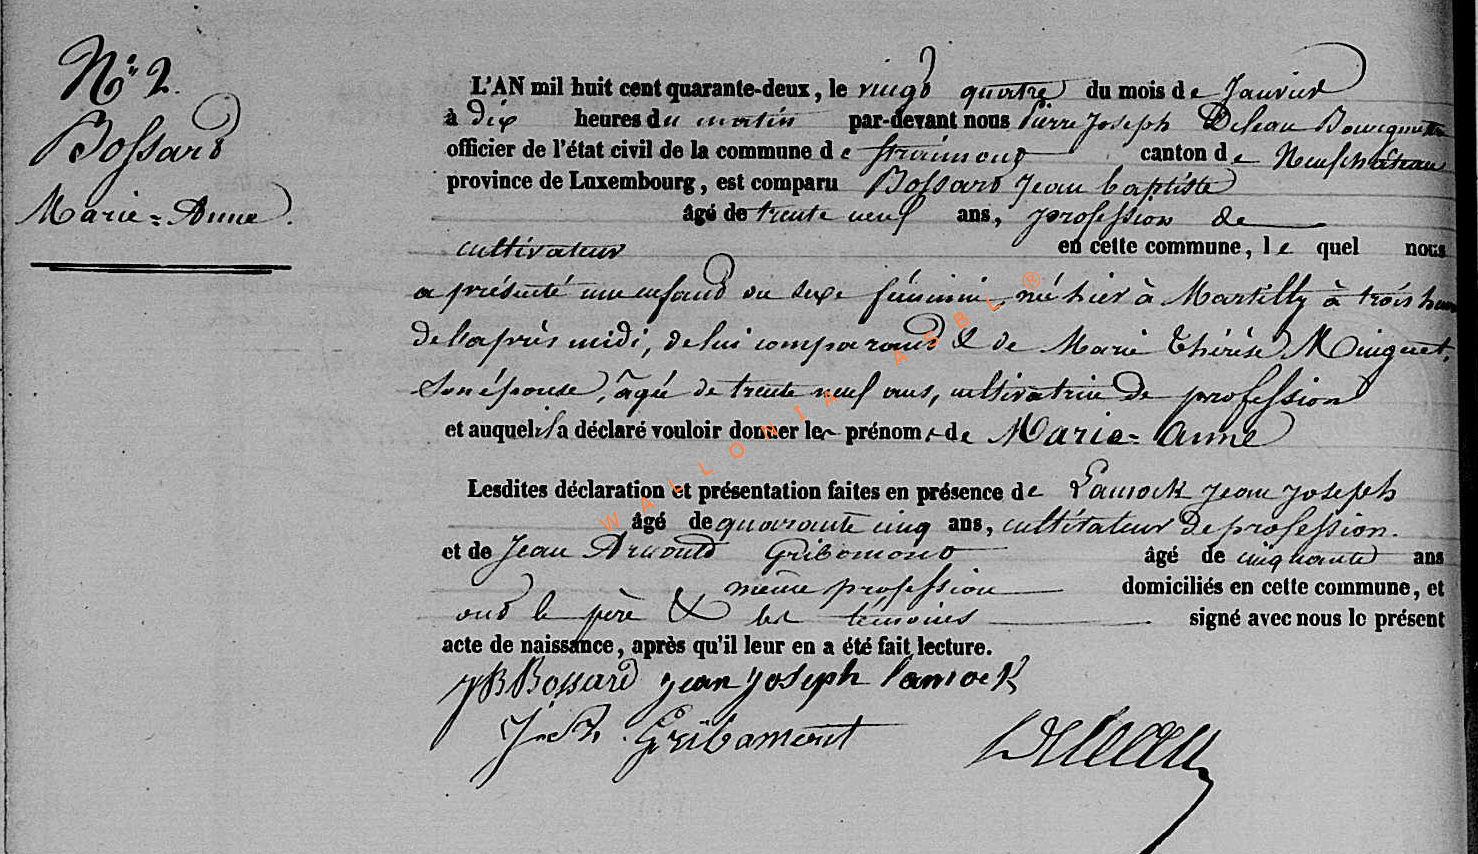 N° 2.
Bossard
Marie=Anne.
L'AN mil huit cent quarante-deux, le vingt quatre du mois de Janvier
à dix heures du matin par-devant nous Pierre Joseph Deleau Bourgmestre
officier de l'état civil de la commune de Straimont canton de Neufchateau
province de Luxembourg, est comparu Bossard Jean baptiste
âgé de trente neuf ans, profession de
cultivateur en cette commune, le quel nous
a présenté un enfant du sexe féminin né hier à Martilly à trois heures
de l'après midi, de lui comparant & de Marie Thérèse Minguet,
son épouse, âgée de trente neuf ans, cultivatrice de profession
et auquel il a déclaré vouloir donner les prénoms de Marie=Anne
Lesdites déclaration et présentation faites en présence de Lamock Jean Joseph
âgé de quarante cinq ans, cultivateur de profession.
et de Jean Arnould Gribomont âgé de cinquante ans
même profession domiciliés en cette commune, et
ont le père & les témoins signé avec nous le présent
acte de naissance, après qu'il leur en a été fait lecture.
JB Bossard jean joseph lamock
Gribomont Deleau
WALLONIA ASBL ®